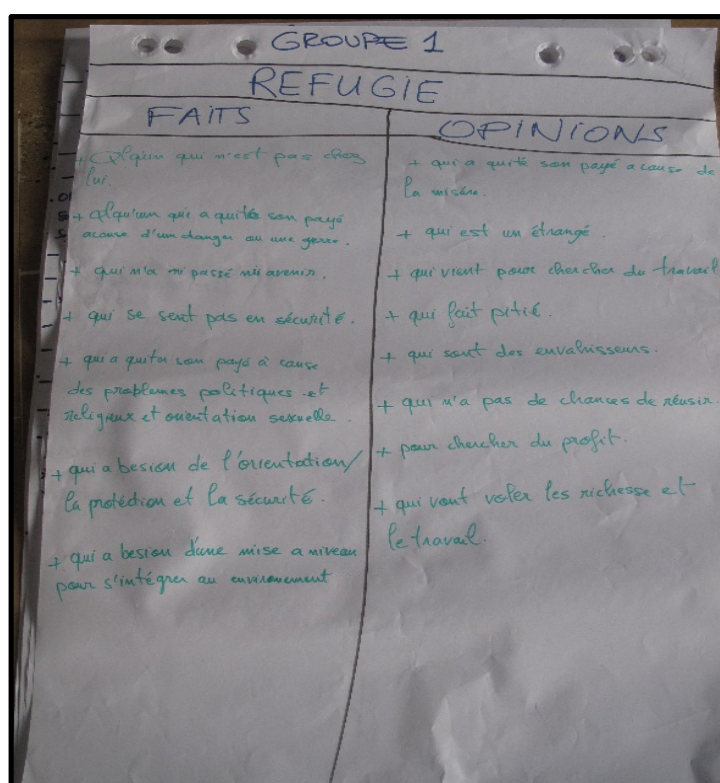 GROUPE 1
REFUGIE
FAITS
+ Qlqun qui n'est pas chez
lui.
+ qlqu'un qui a quitée son payé
acause d'un danger ou une guerre.
+ qui n'a ni passé ni avenir.
+ qui se sent pas en sécurité.
+ qui a quiter son payé à cause
des problemes politiques et
religieux et orientation sexuelle.
+ qui a besion de l'orientation/
la protéction et la sécurité.
+ qui a besion d'une mise a niveau
pour s'intégrer au environement
OPINIONS
+ qui a quité son payé a cause de
la misére.
+ qui est un étrangé.
+ qui vient pour chercher du travail
+ qui fait pitié.
+ qui sont des envahisseurs.
+ qui n'a pas de chances de réusir.
+ pour chercher du profit.
+ qui vont voler les richesse et
le travail.